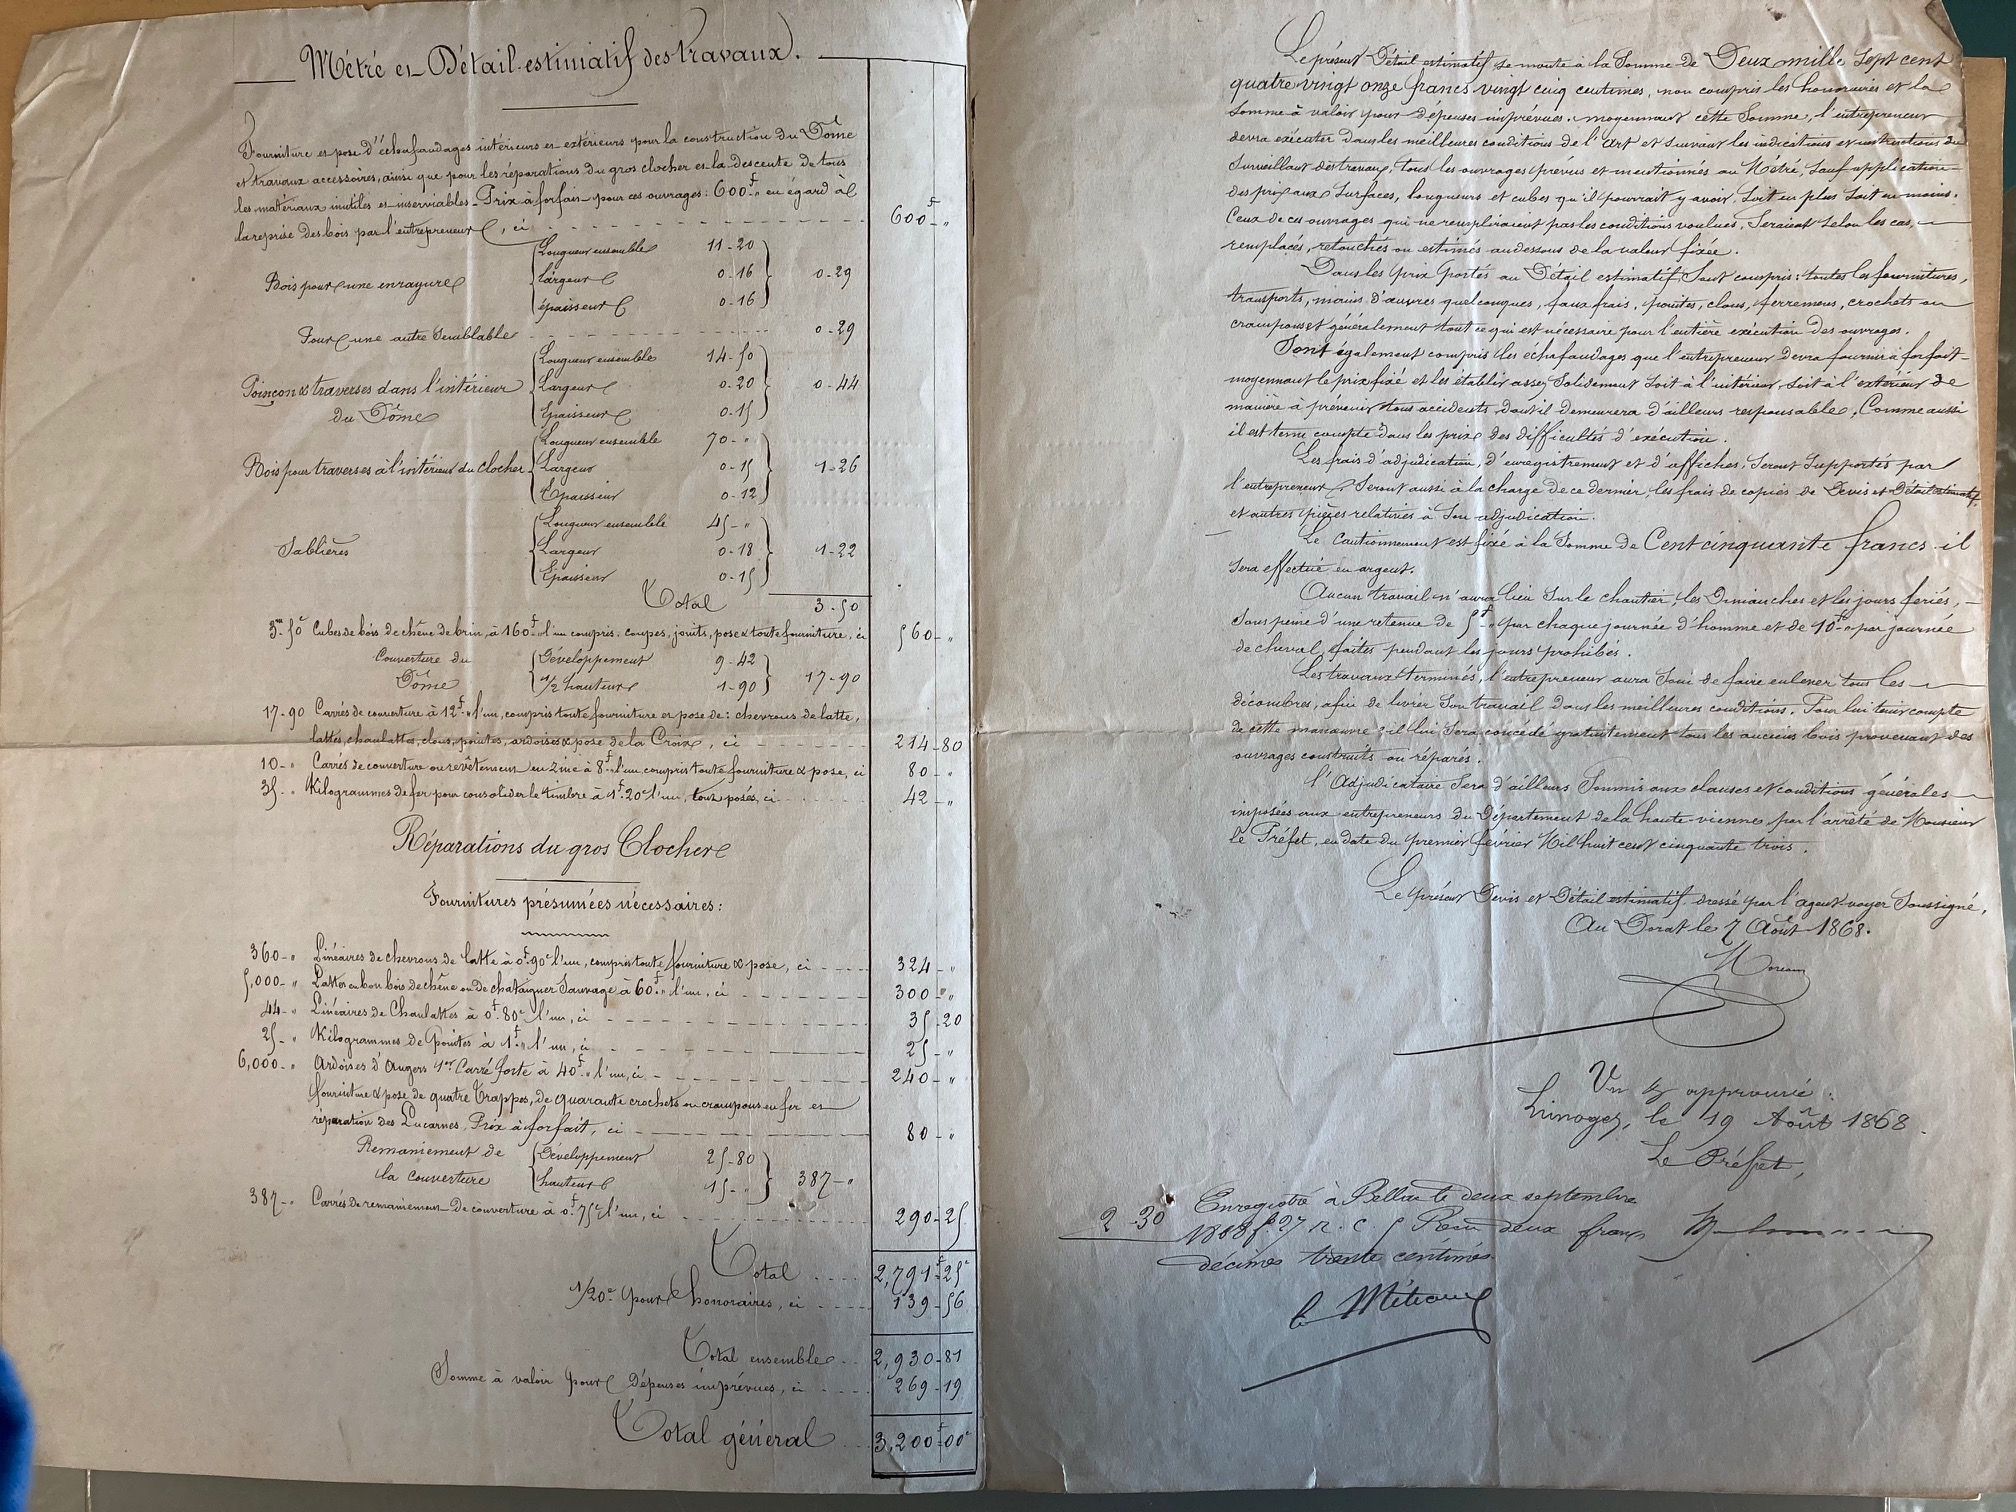 Métré et Détail estimatif des travaux.
Fourniture et pose d'échafaudages intérieurs et extérieurs pour la construction du Dôme
et travaux accessoires, ainsi que pour les réparations du gros clocher et la descente de tous
les matériaux inutiles et inserviables. Prix à forfait pour ces ouvrages: 600f " eu égard à
la reprise des bois par l'entrepreneur, ci - - - 600f "
Bois pour une enrayure { Longueur ensemble 11-20
largeur 0-16 } 0-29
épaisseur 0-16
Pour une autre semblable - - - 0-29
Poinçon & traverses dans l'intérieur du Dôme { Longueur ensemble 14-50
Largeur 0-20 } 0-44
Epaisseur 0-15
Bois pour traverses à l'intérieur du clocher { Longueur ensemble 70-"
Largeur 0-15 } 1-26
Epaisseur 0-12
Sablières { Longueur ensemble 45-"
Largeur 0-18 } 1-22
Epaisseur 0-15
Total 3-50
3m 50 Cubes de bois de chêne de brin, à 160f " l'un compris coupes, joints, pose & toute fourniture, ci 560-"
Couverture du Dôme { Développement 9-42
1/2 hauteur 1-90 } 17-90
17-90 Carrés de couverture à 12f " l'un, compris toute fourniture et pose de: chevrons de latte,
lattes, chanlattes, clous, pointes, ardoises & pose de la Croix, ci - - - 214-80
10-" Carrés de couverture ou revêtement en zinc à 8f " l'un compris toute fourniture & pose, ci 80-"
35-" Kilogrammes de fer pour consolider le timbre à 1f 20c l'un, tout posés, ci 42-"
Réparations du gros Clocher
Fournitures présumées nécessaires:
360-" Linéaires de chevrons de latte à 0f 90c l'un, compris toute fourniture & pose, ci - - - 324-"
5,000-" Lattes en bon bois de chêne ou de chataigner Sauvage à 60f " l'un, ci - - - 300-"
44-" Linéaires de Chanlattes à 0f 80c l'un, ci - - - 35-20
25-" Kilogrammes de Pointes à 1f " l'un, ci - - - 25-"
6,000-" Ardoises d'Angers 1er Carré forte à 40f " l'un, ci - - - 240-"
Fourniture & pose de quatre Trappes, de quarante crochets ou crampons en fer et
réparation des Lucarnes, Prix à forfait, ci - - - 80-"
Remaniement de la couverture { Développement 25-80
hauteur 15-" } 387-"
387-" Carrés de remaniement de couverture à 0f 75c l'un, ci - - - 290-25
Total .... 2,791f 25c
1/20e pour honoraires, ci .... 139-56
Total ensemble .. 2,930-81
Somme à valoir pour Dépenses imprévues, ci .... 269-19
Total général .. 3,200f 00c
Le présent Détail estimatif se monte à la Somme de Deux mille sept cent
quatre vingt onze francs vingt cinq centimes, non compris les honoraires et la
Somme à valoir pour dépenses imprévues. moyennant cette Somme, l'entrepreneur
devra exécuter dans les meilleures conditions de l'art et suivant les indications et instructions du
Surveillant des travaux, tous les ouvrages prévus et mentionnés au Métré, sauf application
des prix aux Surfaces, longueurs et cubes qu'il pourrait y avoir, soit en plus soit en moins.
Ceux de ces ouvrages qui ne rempliraient pas les conditions voulues, seraient selon les cas,
remplacés, retouchés ou estimés audessous de la valeur fixée.
Dans les prix portés au Détail estimatif sont compris: toutes les fournitures,
transports, mains d'œuvres quelconques, faux frais, pointes, clous, ferremens, crochets ou
crampons et généralement tout ce qui est nécessaire pour l'entière exécution des ouvrages.
Sont également compris les échafaudages que l'entrepreneur devra fournir à forfait
moyennant le prix fixé et les établir assez solidement soit à l'intérieur soit à l'extérieur de
manière à prévenir tous accidents dont il demeurera d'ailleurs responsable. Comme aussi
il est tenu compte dans les prix des difficultés d'exécution.
Les frais d'adjudication, d'enregistrement et d'affiches, seront supportés par
l'entrepreneur. Seront aussi à la charge de ce dernier, les frais de copies de Devis et Détail estimatif,
et autres pièces relatives à son adjudication.
Le Cautionnement est fixé à la Somme de Cent cinquante francs il
sera effectué en argent.
Aucun travail n'aura lieu sur le chantier, les Dimanches et les jours fériés,
sous peine d'une retenue de 5f " par chaque journée d'homme et de 10f " par journée
de cheval, faites pendant les jours prohibés.
Les travaux terminés, l'entrepreneur aura soin de faire enlever tous les
décombres, afin de livrer son travail dans les meilleures conditions. Pour lui tenir compte
de cette manœuvre, il lui sera concédé gratuitement tous les anciens bois provenant des
ouvrages construits ou réparés.
l'Adjudicataire sera d'ailleurs soumis aux clauses et conditions générales
imposées aux entrepreneurs du Département de la haute vienne par l'arrêté de Monsieur
Le Préfet, en date du premier février Mil huit cent cinquante trois.
Le présent Devis et Détail estimatif dressé par l'agent-voyer soussigné,
Au Dorat le 7 Août 1868.
Moreau
Vu & approuvé:
Limoges, le 19 Août 1868
Le Préfet,
Enregistré à Bellac le deux septembre
2-30 1868 f. 27 r. c. 5 Reçu deux francs
décimes trente centimes.